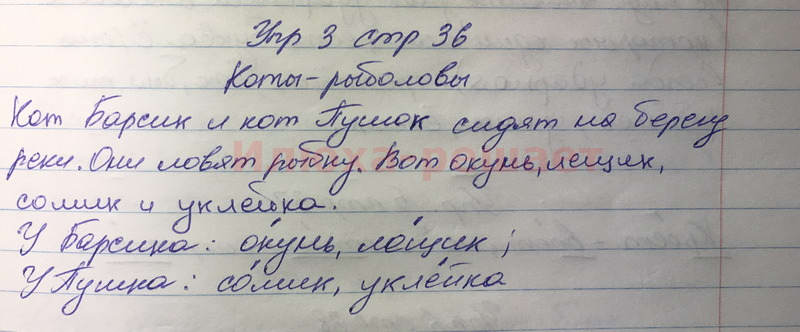 Упр 3 стр 36
Коты-рыболовы
Кот Барсик и кот Пушок сидят на берегу
реки. Они ловят рыбку. Вот окунь, лещик,
сомик и уклейка.
У Барсика: о́кунь, ле́щик;
У Пушка: со́мик, укле́йка
Илюха решает